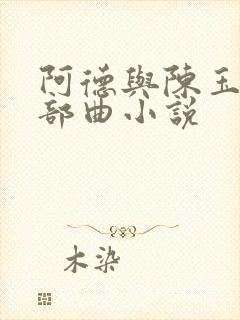 阿德與陳玉
部曲小說
木染